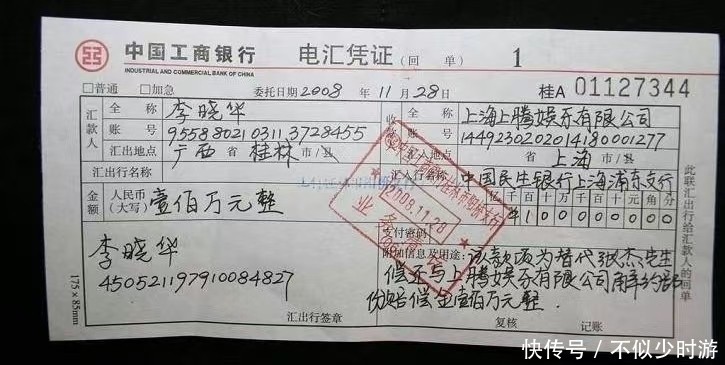 中国工商银行 电汇凭证（回 单） 1
INDUSTRIAL AND COMMERCIAL BANK OF CHINA
□普通 □加急 委托日期 2008 年 11 月 28 日 桂A 01127344
汇款人 全 称 李晓华 全 称 上海上腾娱乐有限公司
账 号 9558802103113728455 账 号 1449230202014180001277
汇出地点 广西 省 桂林 市/县 汇入地点 省 上海 市/县
汇出行名称 汇入行名称 中国民生银行上海浦东支行
金额 人民币（大写） 壹佰万元整 千百十万千百十元角分
¥100000000
2008.11.28
业务清讫
支付密码
李晓华
450521197910084827
附加信息及用途：该款项为替代张杰先生
偿还与上腾娱乐有限公司解约部
份赔偿金壹佰万元整.
汇出行签章 复核 记账
175×85mm
此联汇出行给汇款人的回单
快传号 / 不似少时游